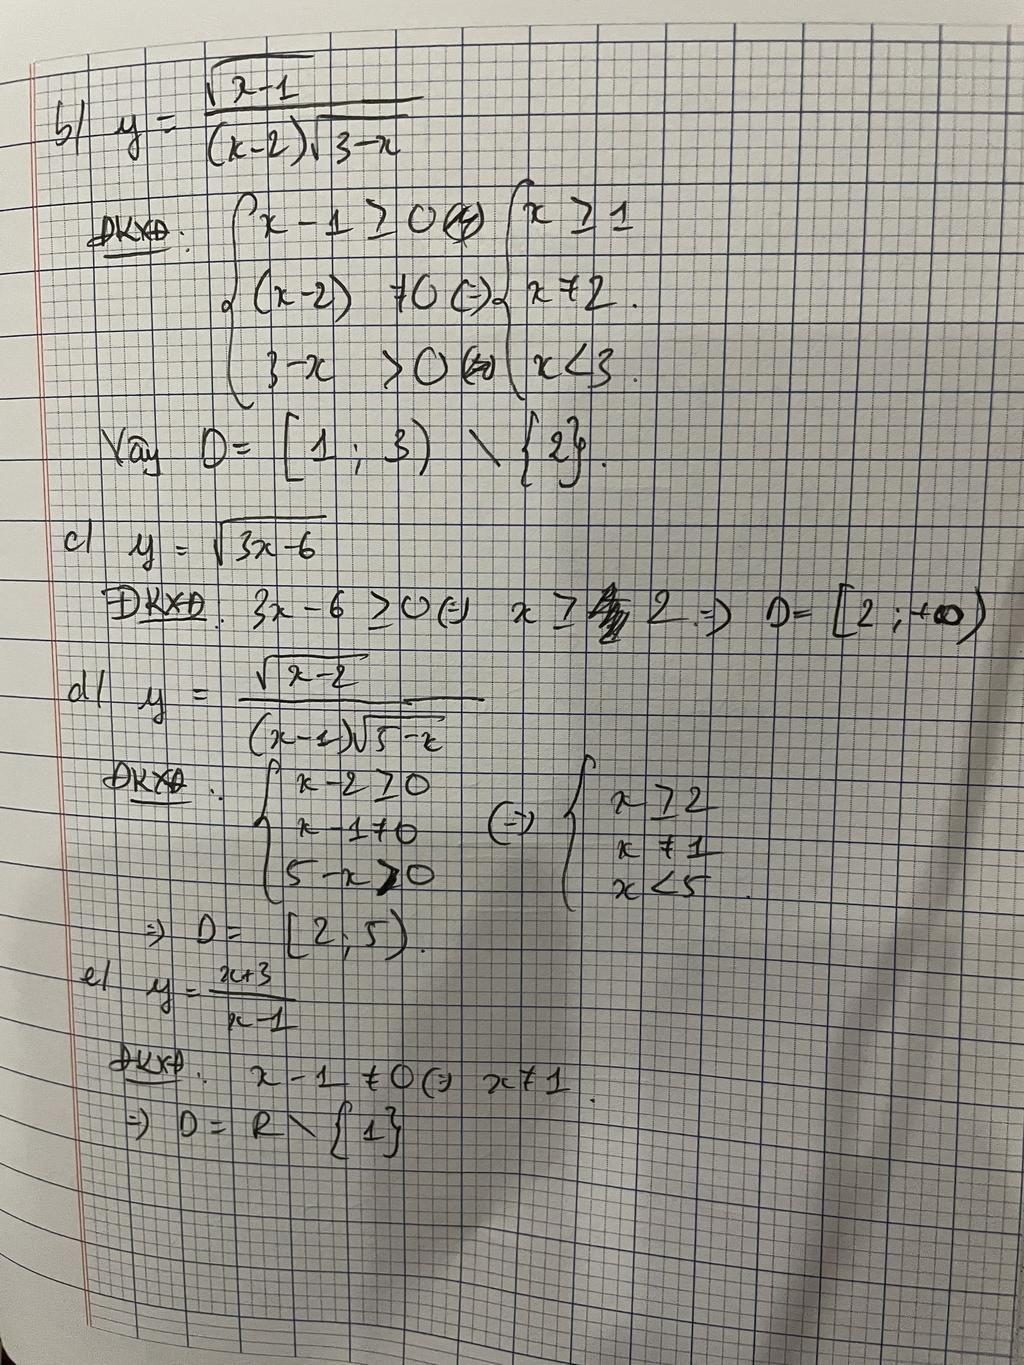 b/ y = √(x-1) / ((x-2)√(3-x))
ĐKXĐ: { x - 1 ≥ 0 (=) { x ≥ 1
(x-2) ≠ 0 (=) x ≠ 2.
3-x > 0 (=) x < 3.
Vậy D = [1; 3) \ {2}.
c/ y = √(3x-6)
ĐKXĐ: 3x - 6 ≥ 0 (=) x ≥ 2 => D = [2; +∞)
d/ y = √(x-2) / ((x-1)√(5-x))
ĐKXĐ: { x - 2 ≥ 0 (=) { x ≥ 2
x - 1 ≠ 0 x ≠ 1
5 - x > 0 x < 5.
=> D = [2; 5).
e/ y = (x+3) / (x-1)
ĐKXĐ: x - 1 ≠ 0 (=) x ≠ 1.
=> D = R \ {1}